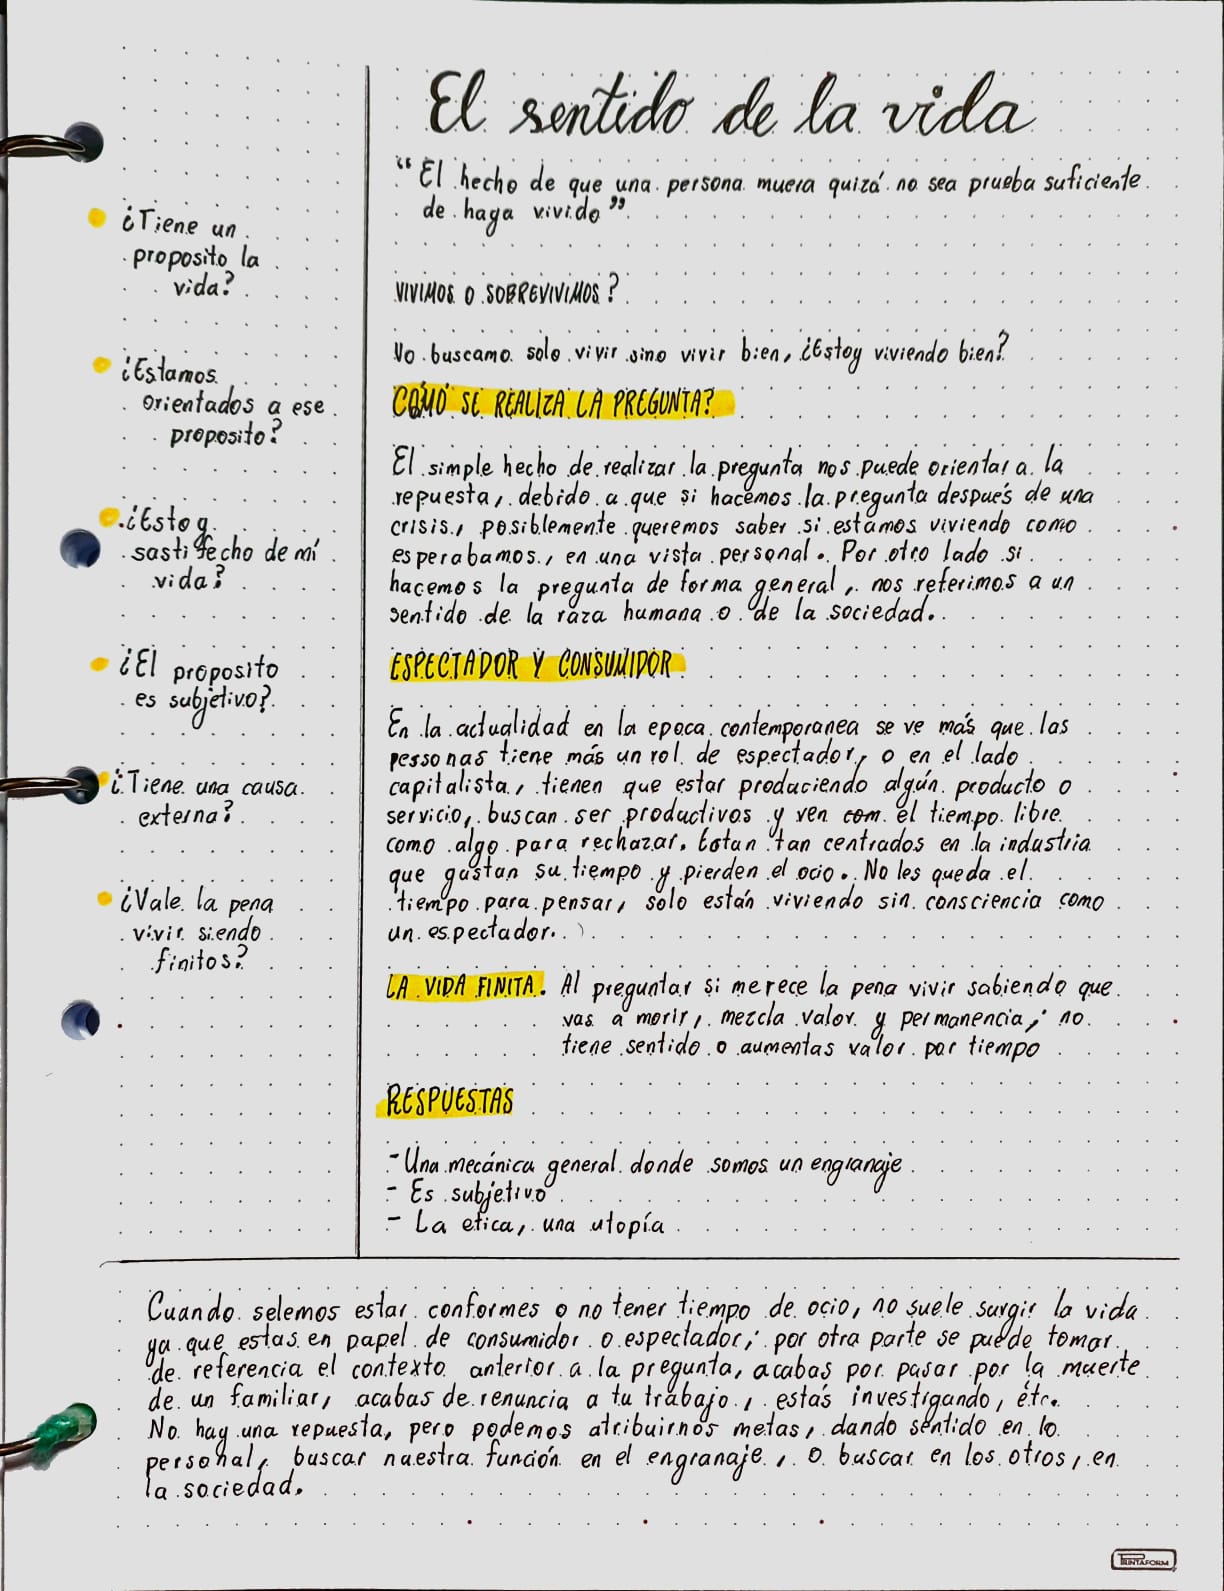 El sentido de la vida
“El hecho de que una persona muera quizá no sea prueba suficiente
de haga vivido”
VIVIMOS O SOBREVIVIMOS?
No buscamo solo vivir sino vivir bien, ¿Estoy viviendo bien?
CÓMO SE REALIZA LA PREGUNTA?
El simple hecho de realizar la pregunta nos puede orientar a la
repuesta, debido a que si hacemos la pregunta después de una
crisis, posiblemente queremos saber si estamos viviendo como
esperabamos, en una vista personal. Por otro lado si
hacemos la pregunta de forma general, nos referimos a un
sentido de la raza humana o de la sociedad.
ESPECTADOR Y CONSUMIDOR
En la actualidad en la epoca contemporanea se ve más que las
personas tiene más un rol de espectador, o en el lado
capitalista, tienen que estar produciendo algún producto o
servicio, buscan ser productivos y ven com el tiempo libre
como algo para rechazar. Estan tan centrados en la industria
que gastan su tiempo y pierden el ocio. No les queda el
tiempo para pensar, solo están viviendo sin consciencia como
un espectador.
LA VIDA FINITA. Al preguntar si merece la pena vivir sabiendo que
vas a morir, mezcla valor y permanencia; no
tiene sentido o aumentas valor por tiempo
RESPUESTAS
- Una mecánica general donde somos un engranaje
- Es subjetivo
- La etica, una utopía
¿Tiene un
proposito la
vida?
¿Estamos
orientados a ese
proposito?
¿Estoy
sastifecho de mí
vida?
¿El proposito
es subjetivo?
¿Tiene una causa
externa?
¿Vale la pena
vivir siendo
finitos?
Cuando selemos estar conformes o no tener tiempo de ocio, no suele surgir la vida
ya que estas en papel de consumidor o espectador; por otra parte se puede tomar
de referencia el contexto anterior a la pregunta, acabas por pasar por la muerte
de un familiar, acabas de renuncia a tu trabajo, estás investigando, étc.
No hay una repuesta, pero podemos atribuirnos metas, dando sentido en lo
personal, buscar nuestra función en el engranaje, o buscar en los otros, en
la sociedad.
PRINTAFORM